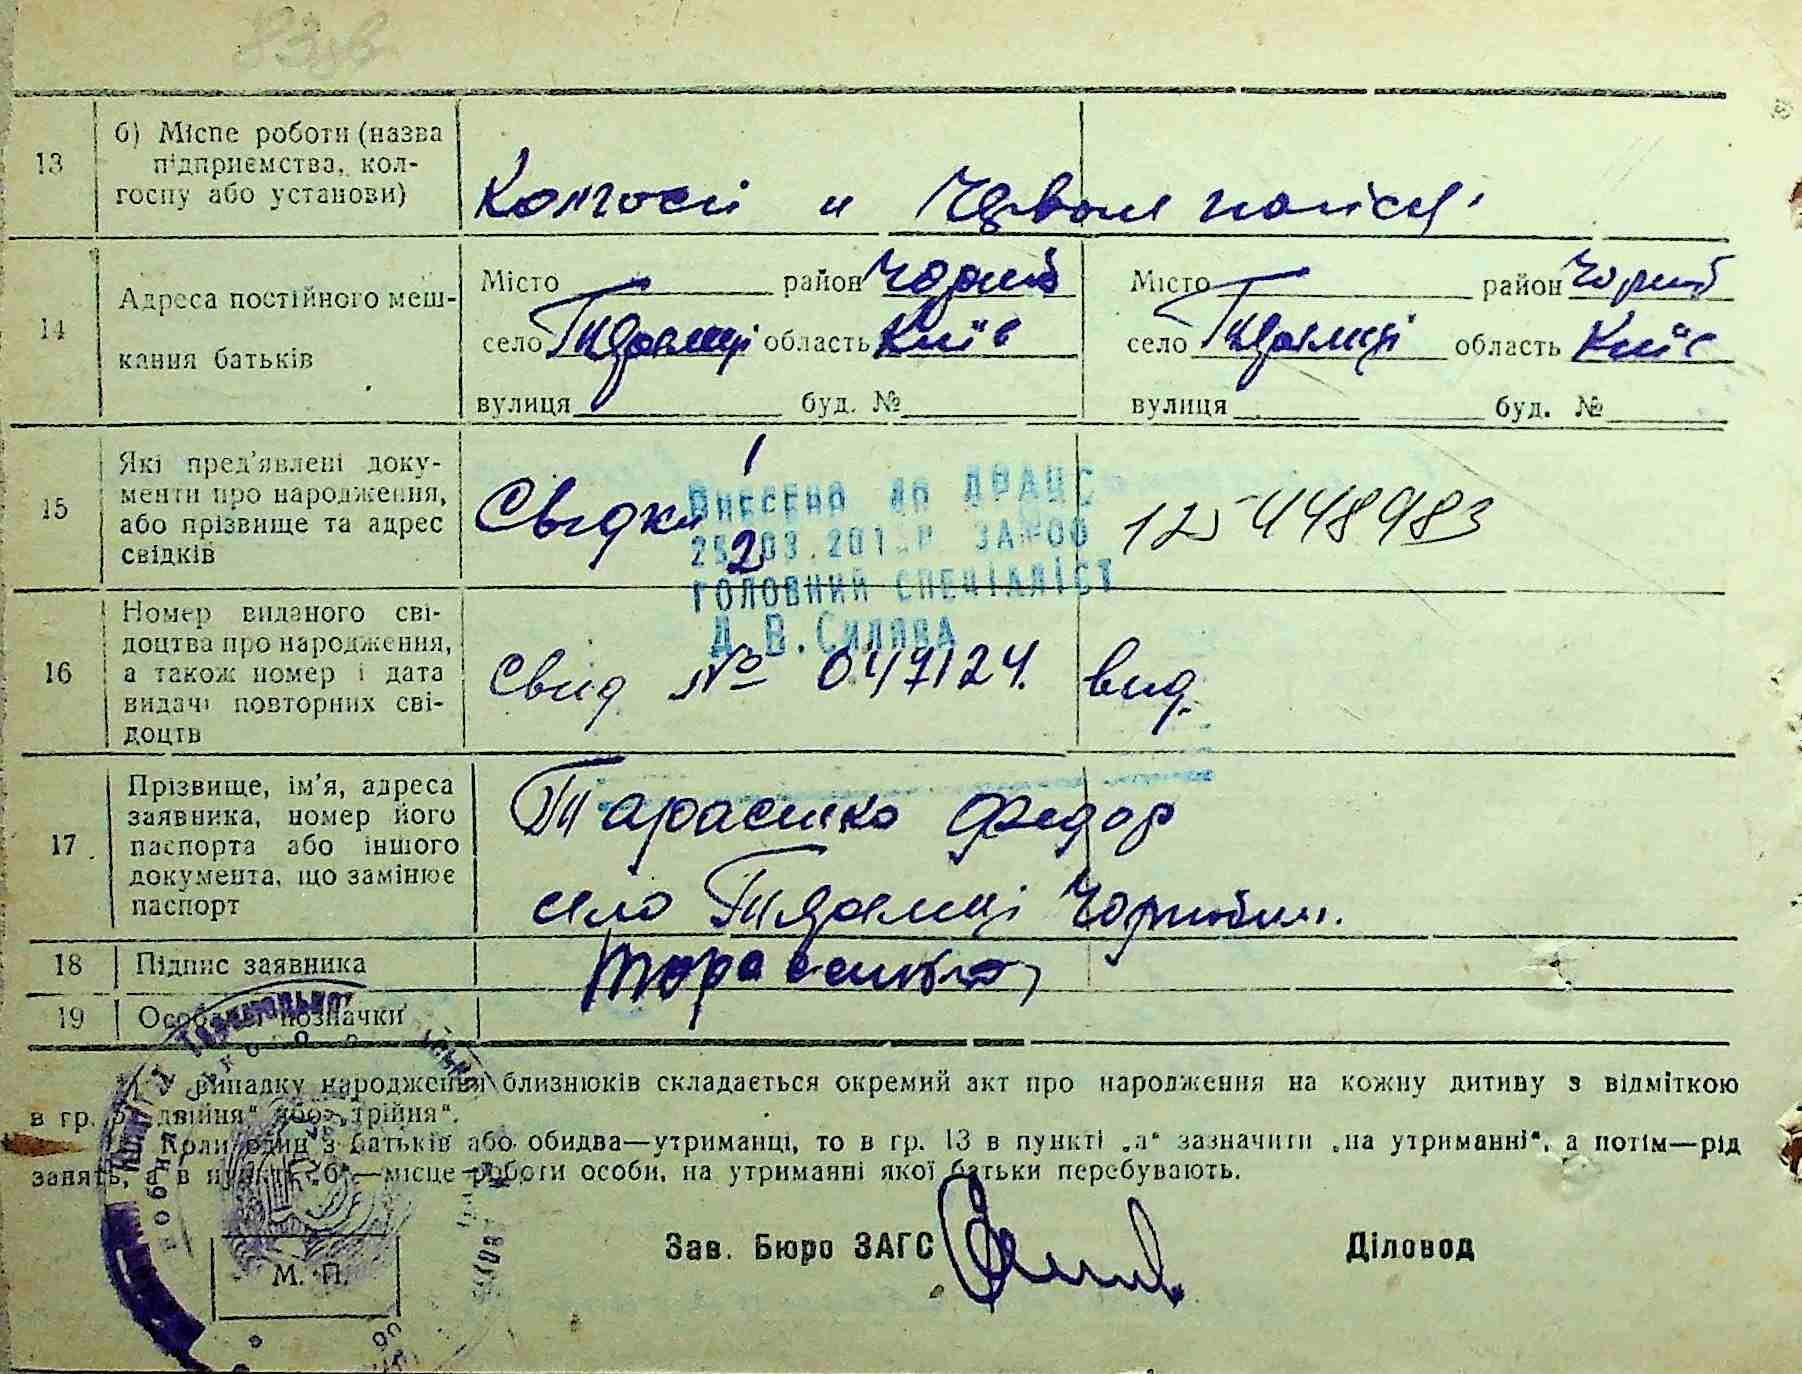 13
б) Місце роботи (назва
підприємства, кол-
госпу або установи)
Колгосп "
14
Адреса постійного меш-
кання батьків
Місто район Чорноб Місто район Чорноб
село область Київ село область Київ
вулиця буд. № вулиця буд. №
15
Які пред'явлені доку-
менти про народження,
або прізвище та адрес
свідків
1
Свідки
2
ВНЕСЕНО ДО ДРАЦС
ЗА №00
ГОЛОВНИЙ СПЕЦІАЛІСТ
Д.В.Силява
1254448983
16
Номер виданого сві-
доцтва про народження,
а також номер і дата
видачі повторних сві-
доцтв
Свид № 047124. вид.
17
Прізвище, ім'я, адреса
заявника, номер його
паспорта або іншого
документа, що замінює
паспорт
Тарасенко Федор
село
18
Підпис заявника
Тарасенко
19
Особливі позначки
випадку народження близнюків складається окремий акт про народження на кожну дитину з відміткою
в гр. 5 „двійня" або „трійня".
Коли один з батьків або обидва—утриманці, то в гр. 13 в пункті „а" зазначити „на утриманні", а потім—рід
занять, а в пункті „б"—місце роботи особи, на утриманні якої батьки перебувають.
Зав. Бюро ЗАГС Діловод
М. П.